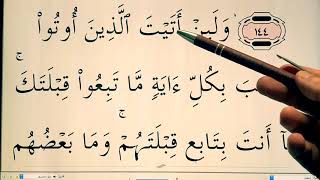 ١٤٤ وَلَئِنْ أَتَيْتَ ٱلَّذِينَ أُوتُوا۟
بَ بِكُلِّ ءَايَةٍ مَّا تَبِعُوا۟ قِبْلَتَكَ ۚ
آ أَنتَ بِتَابِعٍ قِبْلَتَهُمْ ۚ وَمَا بَعْضُهُم